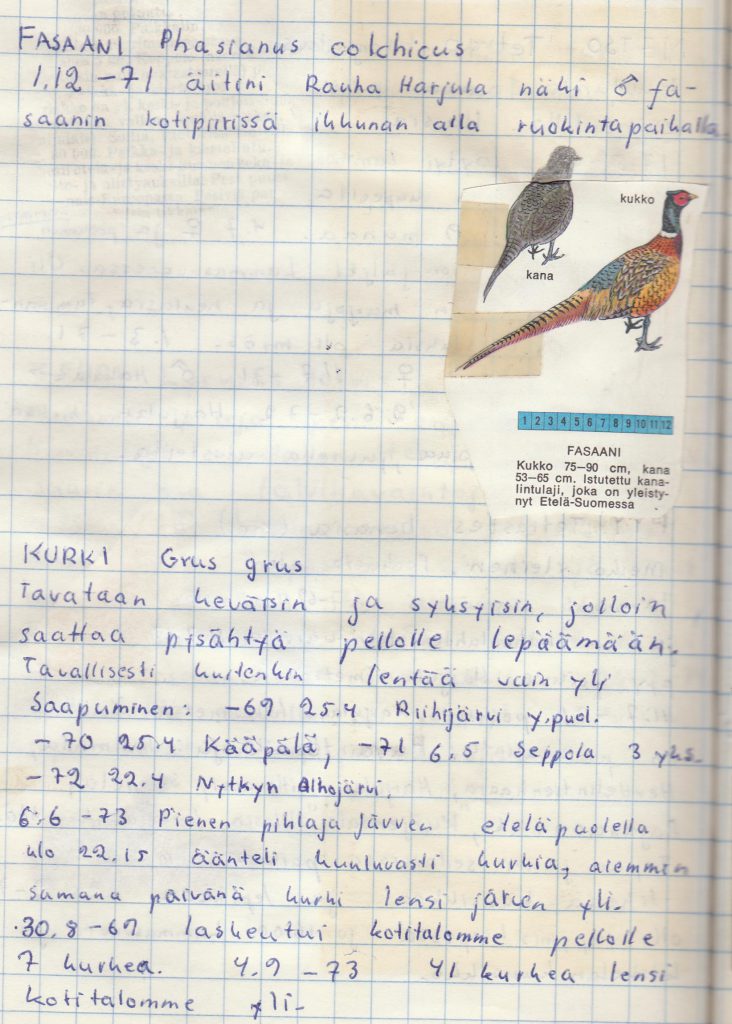 FASAANI Phasianus colchicus
1.12 -71 äitini Rauha Harjula nähi ♂ fa-
saanin kotipiirissä ikkunan alla ruokintapaikalla
kukko
kana
1 2 3 4 5 6 7 8 9 10 11 12
FASAANI
Kukko 75—90 cm, kana
53—65 cm. Istutettu kana-
lintulaji, joka on yleisty-
nyt Etelä-Suomessa
KURKI Grus grus
Tavataan keväisin ja syksyisin, jolloin
saattaa pysähtyä pellolle lepäämään.
Tavallisesti kuitenkin lentää vain yli
Saapuminen: -69 25.4 Riihijärvi y.puol.
-70 25.4 Kääpälä, -71 6.5 Seppola 3 yks.
-72 22.4 Nytkyn Alhojärvi.
6.6 -73 Pienen pihlajajärven eteläpuolella
klo 22.15 äänteli kuuluvasti kurkia, aiemmin
samana päivänä kurki lensi järven yli.
30.8 -69 laskeutui kotitalomme pellolle
7 kurkea. 4.9 -73 41 kurkea lensi
kotitalomme yli.